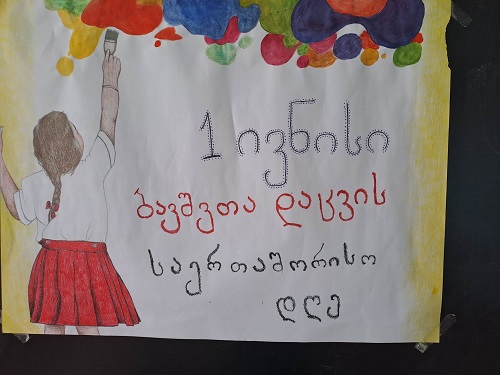 1 ივნისი
ბავშვთა დაცვის
საერთაშორისო
დღე